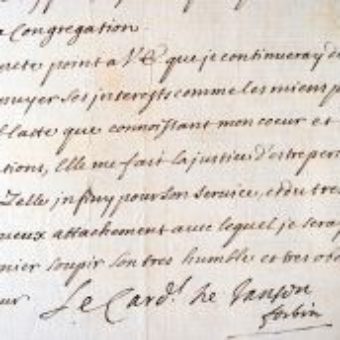 a Congregation.
crete point a V E que je continueray d
nuyer ses interests comme les miens p
flatte que connoissant mon coeur et
tions, Elle me fait la justice d'estre per
Zelle infiny pour son service, et du tres
ueux attachement avec lequel je seray
nier soupir son tres humble et tres o
ur Le Card.^l de Janson
forbin